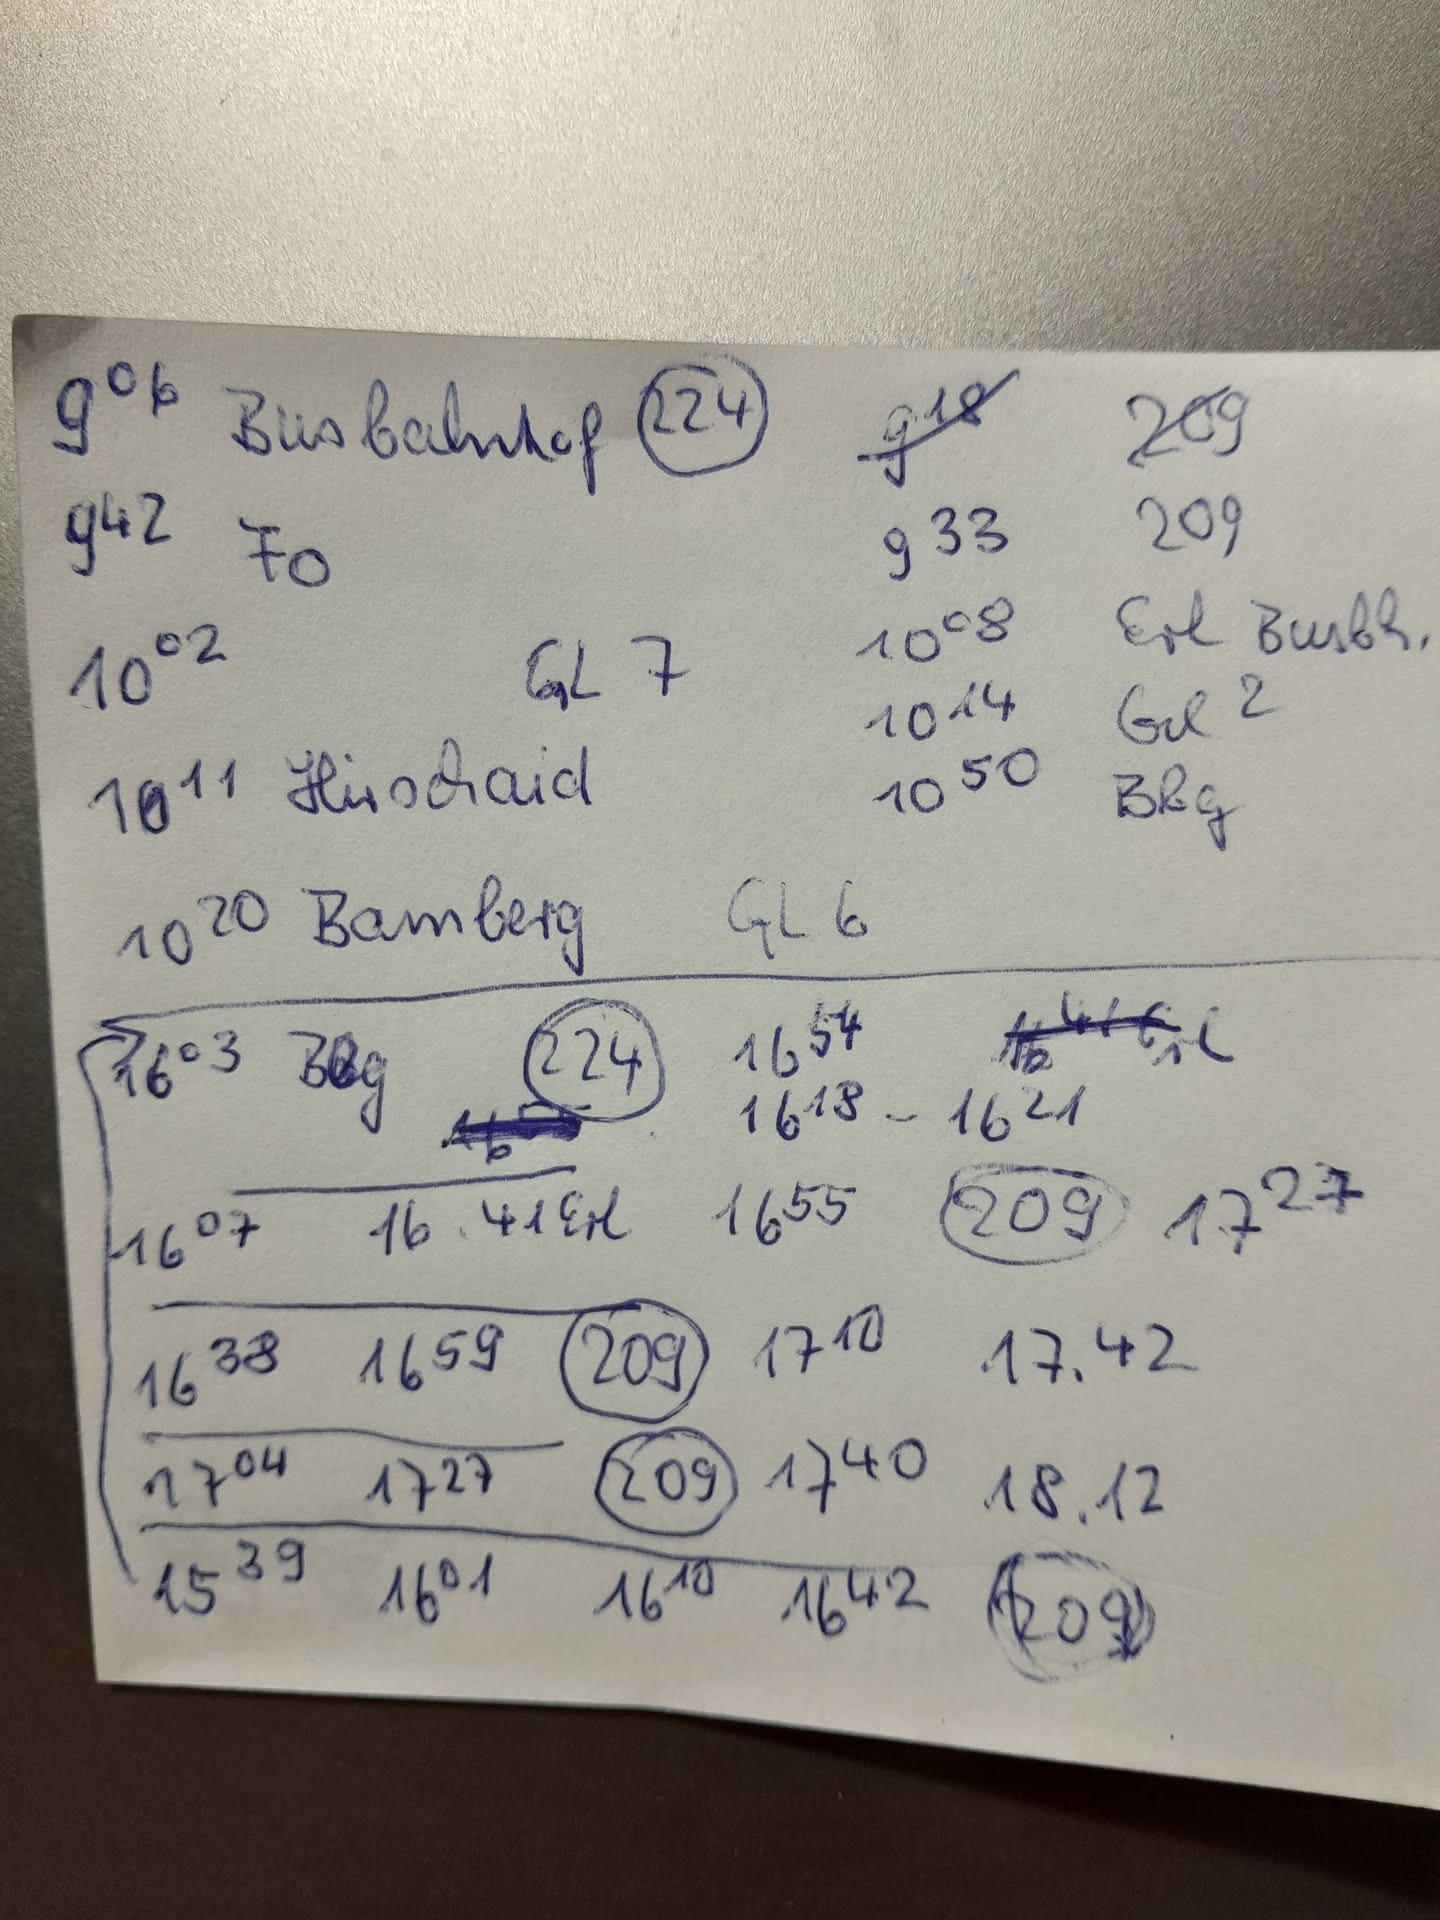 9 06 Busbahnhof 224 9 18 209
9 42 Fo 9 33 209
10 02 GL 7 10 08 Erl Busbh.
10 14 Gel 2
10 11 Hirschaid 10 50 Bbg
10 20 Bamberg GL 6
16 03 Bbg 224 16 54
16 18 - 16 21
16 07 16.41 Erl 16 55 209 17 27
16 38 16 59 209 17 10 17.42
17 04 17 27 209 17 40 18.12
15 39 16 01 16 10 16 42 209